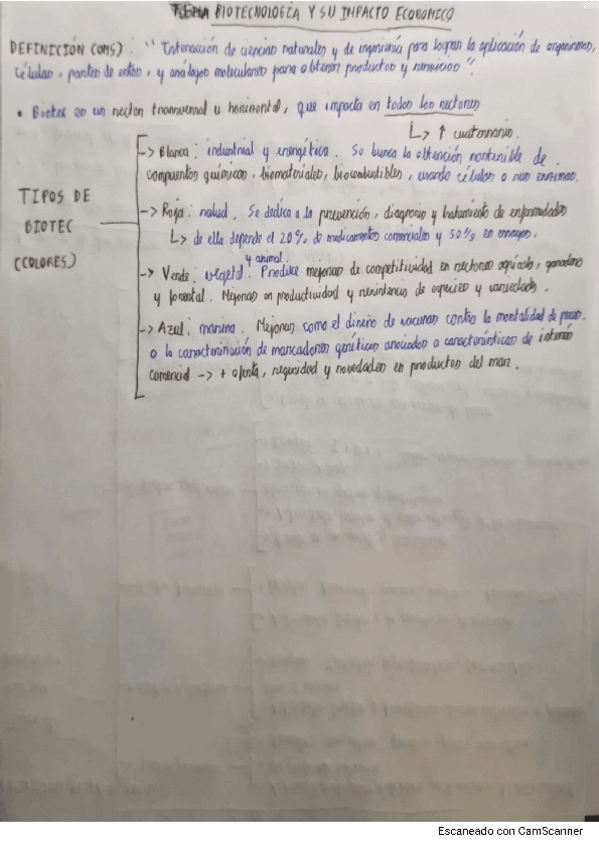 BIOTECNOLOGÍA Y SU IMPACTO ECONÓMICO
DEFINICIÓN (OMS) : "Interacción de ciencias naturales y de ingeniería para lograr la aplicación de organismos,
células, partes de estos, y análogos moleculares para obtener productos y servicios".
• Biotec es un sector transversal u horizontal, que impacta en todos los sectores
↳ ↑ cuaternario.
TIPOS DE
BIOTEC
(COLORES)
-> Blanca : industrial y energética. Se busca la obtención sostenible de
compuestos químicos, biomateriales, biocombustibles, usando células o sus enzimas.
-> Roja : salud. Se dedica a la prevención, diagnosis y tratamiento de enfermedades
↳ de ella depende el 20% de medicamentos comerciales y 50% en ensayos.
y animal.
-> Verde : vegetal. Produce mejoras de competitividad en sectores agrícola, ganadero
y forestal. Mejoras en productividad y resistencia de especies y variedades.
-> Azul : marina. Mejoras como el diseño de vacunas contra la mortalidad de peces.
o la caracterización de marcadores genéticos asociados a características de interés
comercial -> + oferta, seguridad y novedades en productos del mar.
Escaneado con CamScanner